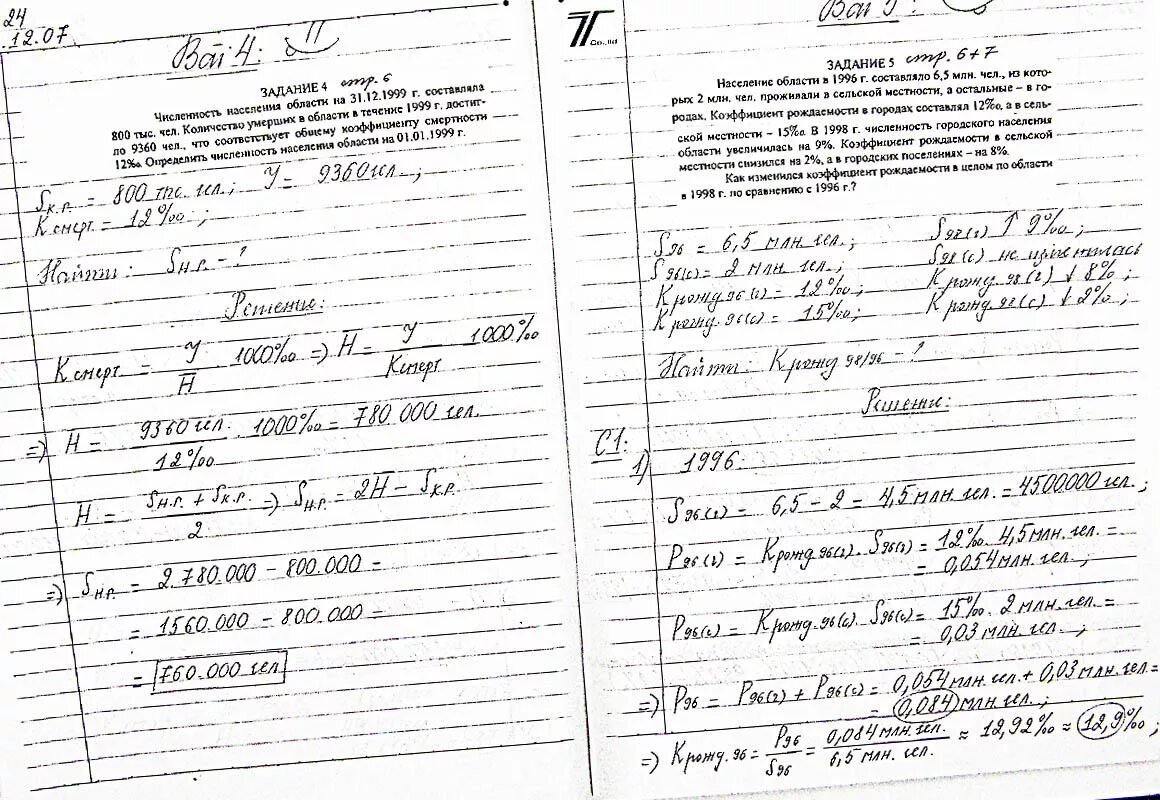 24
12.07
Ваі 4:
ЗАДАНИЕ 4 стр. 6
Численность населения области на 31.12.1999 г. составляла
800 тыс. чел. Количество умерших в области в течение 1999 г. достиг-
ло 9360 чел., что соответствует общему коэффициенту смертности
12‰. Определить численность населения области на 01.01.1999 г.
Sк.р. = 800 тыс. чел.; У = 9360 чел.;
К смерт = 12‰;
Найти: Sн.р. - ?
Решение:
К смерт = У/H̄ · 1000‰ => H̄ = У/К смерт · 1000‰
=> H̄ = 9360 чел./12‰ · 1000‰ = 780.000 чел.
H̄ = (Sн.р. + Sк.р.)/2 => Sн.р. = 2H̄ - Sк.р.
=> Sн.р. = 2.780.000 - 800.000 =
= 1560.000 - 800.000 =
= 760.000 чел
T Co.,ltd
ЗАДАНИЕ 5 стр. 6+7
Население области в 1996 г. составляло 6,5 млн. чел., из кото-
рых 2 млн. чел. проживали в сельской местности, а остальные – в го-
родах. Коэффициент рождаемости в городах составлял 12‰, а в сель-
ской местности – 15‰. В 1998 г. численность городского населения
области увеличилась на 9%. Коэффициент рождаемости в сельской
местности снизился на 2%, а в городских поселениях – на 8%.
Как изменился коэффициент рождаемости в целом по области
в 1998 г. по сравнению с 1996 г.?
S96 = 6,5 млн. чел.; S98(г) ↑ 9‰;
S96(с) = 2 млн. чел.; S98(с) не изменилась
К рожд.96(г) = 12‰; К рожд.98(г) ↓ 8%;
К рожд.96(с) = 15‰; К рожд.98(с) ↓ 2%;
Найти: К рожд 98/96 - ?
Решение:
С1:
1) 1996:
S96(г) = 6,5 - 2 = 4,5 млн. чел. = 4500.000 чел.;
P96(г) = К рожд.96(г) · S96(г) = 12‰ · 4,5 млн. чел. =
= 0,054 млн. чел.;
P96(с) = К рожд.96(с) · S96(с) = 15‰ · 2 млн. чел. =
= 0,03 млн. чел.;
=> P96 = P96(г) + P96(с) = 0,054 млн. чел. + 0,03 млн. чел =
= 0,084 млн. чел.;
=> К рожд.96 = P96/S96 = 0,084 млн. чел./6,5 млн. чел. ≈ 12,92‰ ≈ 12,9‰;